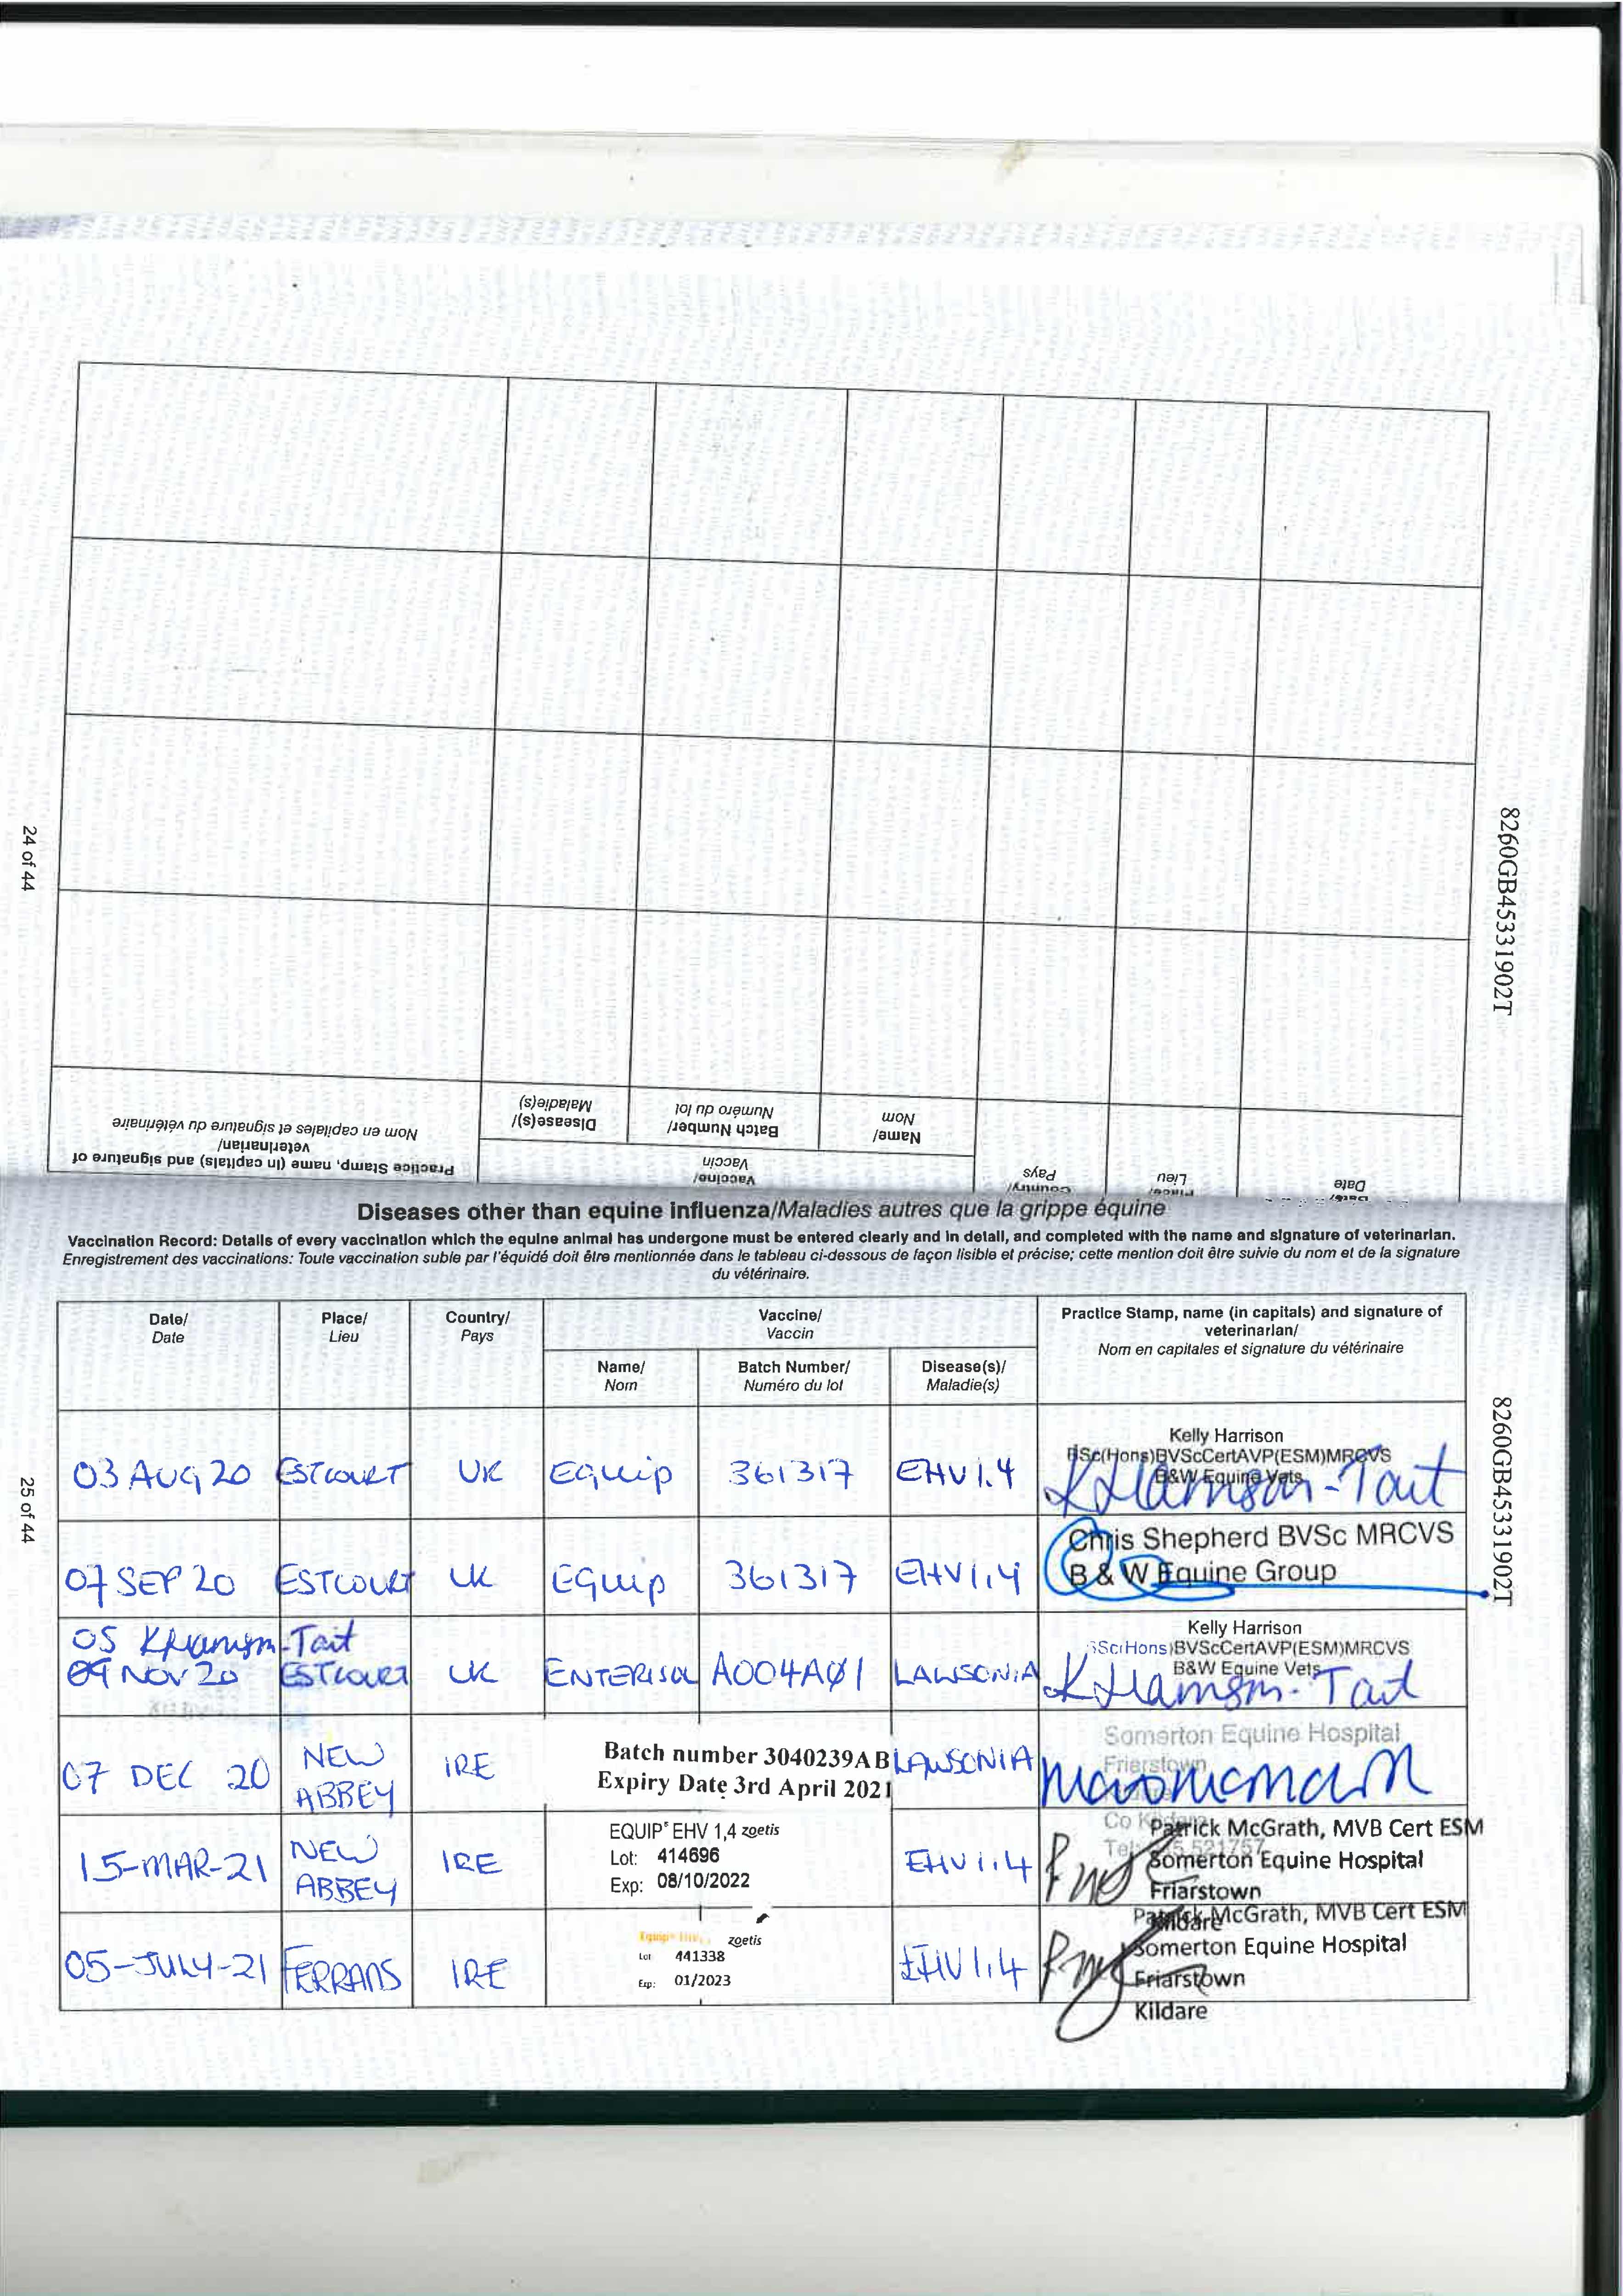 24 of 44
8260GB45331902T
Date/
Date
Place/
Lieu
Country/
Pays
Vaccine/
Vaccin
Name/
Nom
Batch Number/
Numéro du lot
Disease(s)/
Maladie(s)
Practice Stamp, name (in capitals) and signature of
veterinarian/
Nom en capitales et signature du vétérinaire
Diseases other than equine influenza/Maladies autres que la grippe équine
Vaccination Record: Details of every vaccination which the equine animal has undergone must be entered clearly and in detail, and completed with the name and signature of veterinarian.
Enregistrement des vaccinations: Toute vaccination subie par l'équidé doit être mentionnée dans le tableau ci-dessous de façon lisible et précise; cette mention doit être suivie du nom et de la signature
du vétérinaire.
Date/
Date
Place/
Lieu
Country/
Pays
Vaccine/
Vaccin
Name/
Nom
Batch Number/
Numéro du lot
Disease(s)/
Maladie(s)
Practice Stamp, name (in capitals) and signature of
veterinarian/
Nom en capitales et signature du vétérinaire
25 of 44
8260GB45331902T
03 AUG 20 ESTCOURT UK Equip 361317 EHV1.4
Kelly Harrison
BSc(Hons)BVScCertAVP(ESM)MRCVS
B&W Equine Vets
KHarrison-Tait
07 SEP 20 ESTCOURT UK Equip 361317 EHV1.4
Chris Shepherd BVSc MRCVS
B & W Equine Group
05 KHarrison-Tait
09 NOV 20 ESTCOURT UK ENTERISOL A004A01 LAWSONIA
Kelly Harrison
BSc(Hons)BVScCertAVP(ESM)MRCVS
B&W Equine Vets
KHarrison-Tait
07 DEC 20
NEW
ABBEY
IRE
Batch number 3040239AB
Expiry Date 3rd April 2021
LAWSONIA
Somerton Equine Hospital
Frierstown
Co Kildare
Tel:
15-MAR-21
NEW
ABBEY
IRE
EQUIP® EHV 1,4 zoetis
Lot: 414696
Exp: 08/10/2022
EHV1.4
Patrick McGrath, MVB Cert ESM
Somerton Equine Hospital
Friarstown
Kildare
05-JULY-21 FERRANS IRE
zoetis
Lot 441338
Exp: 01/2023
EHV1.4
Patrick McGrath, MVB Cert ESM
Somerton Equine Hospital
Friarstown
Kildare